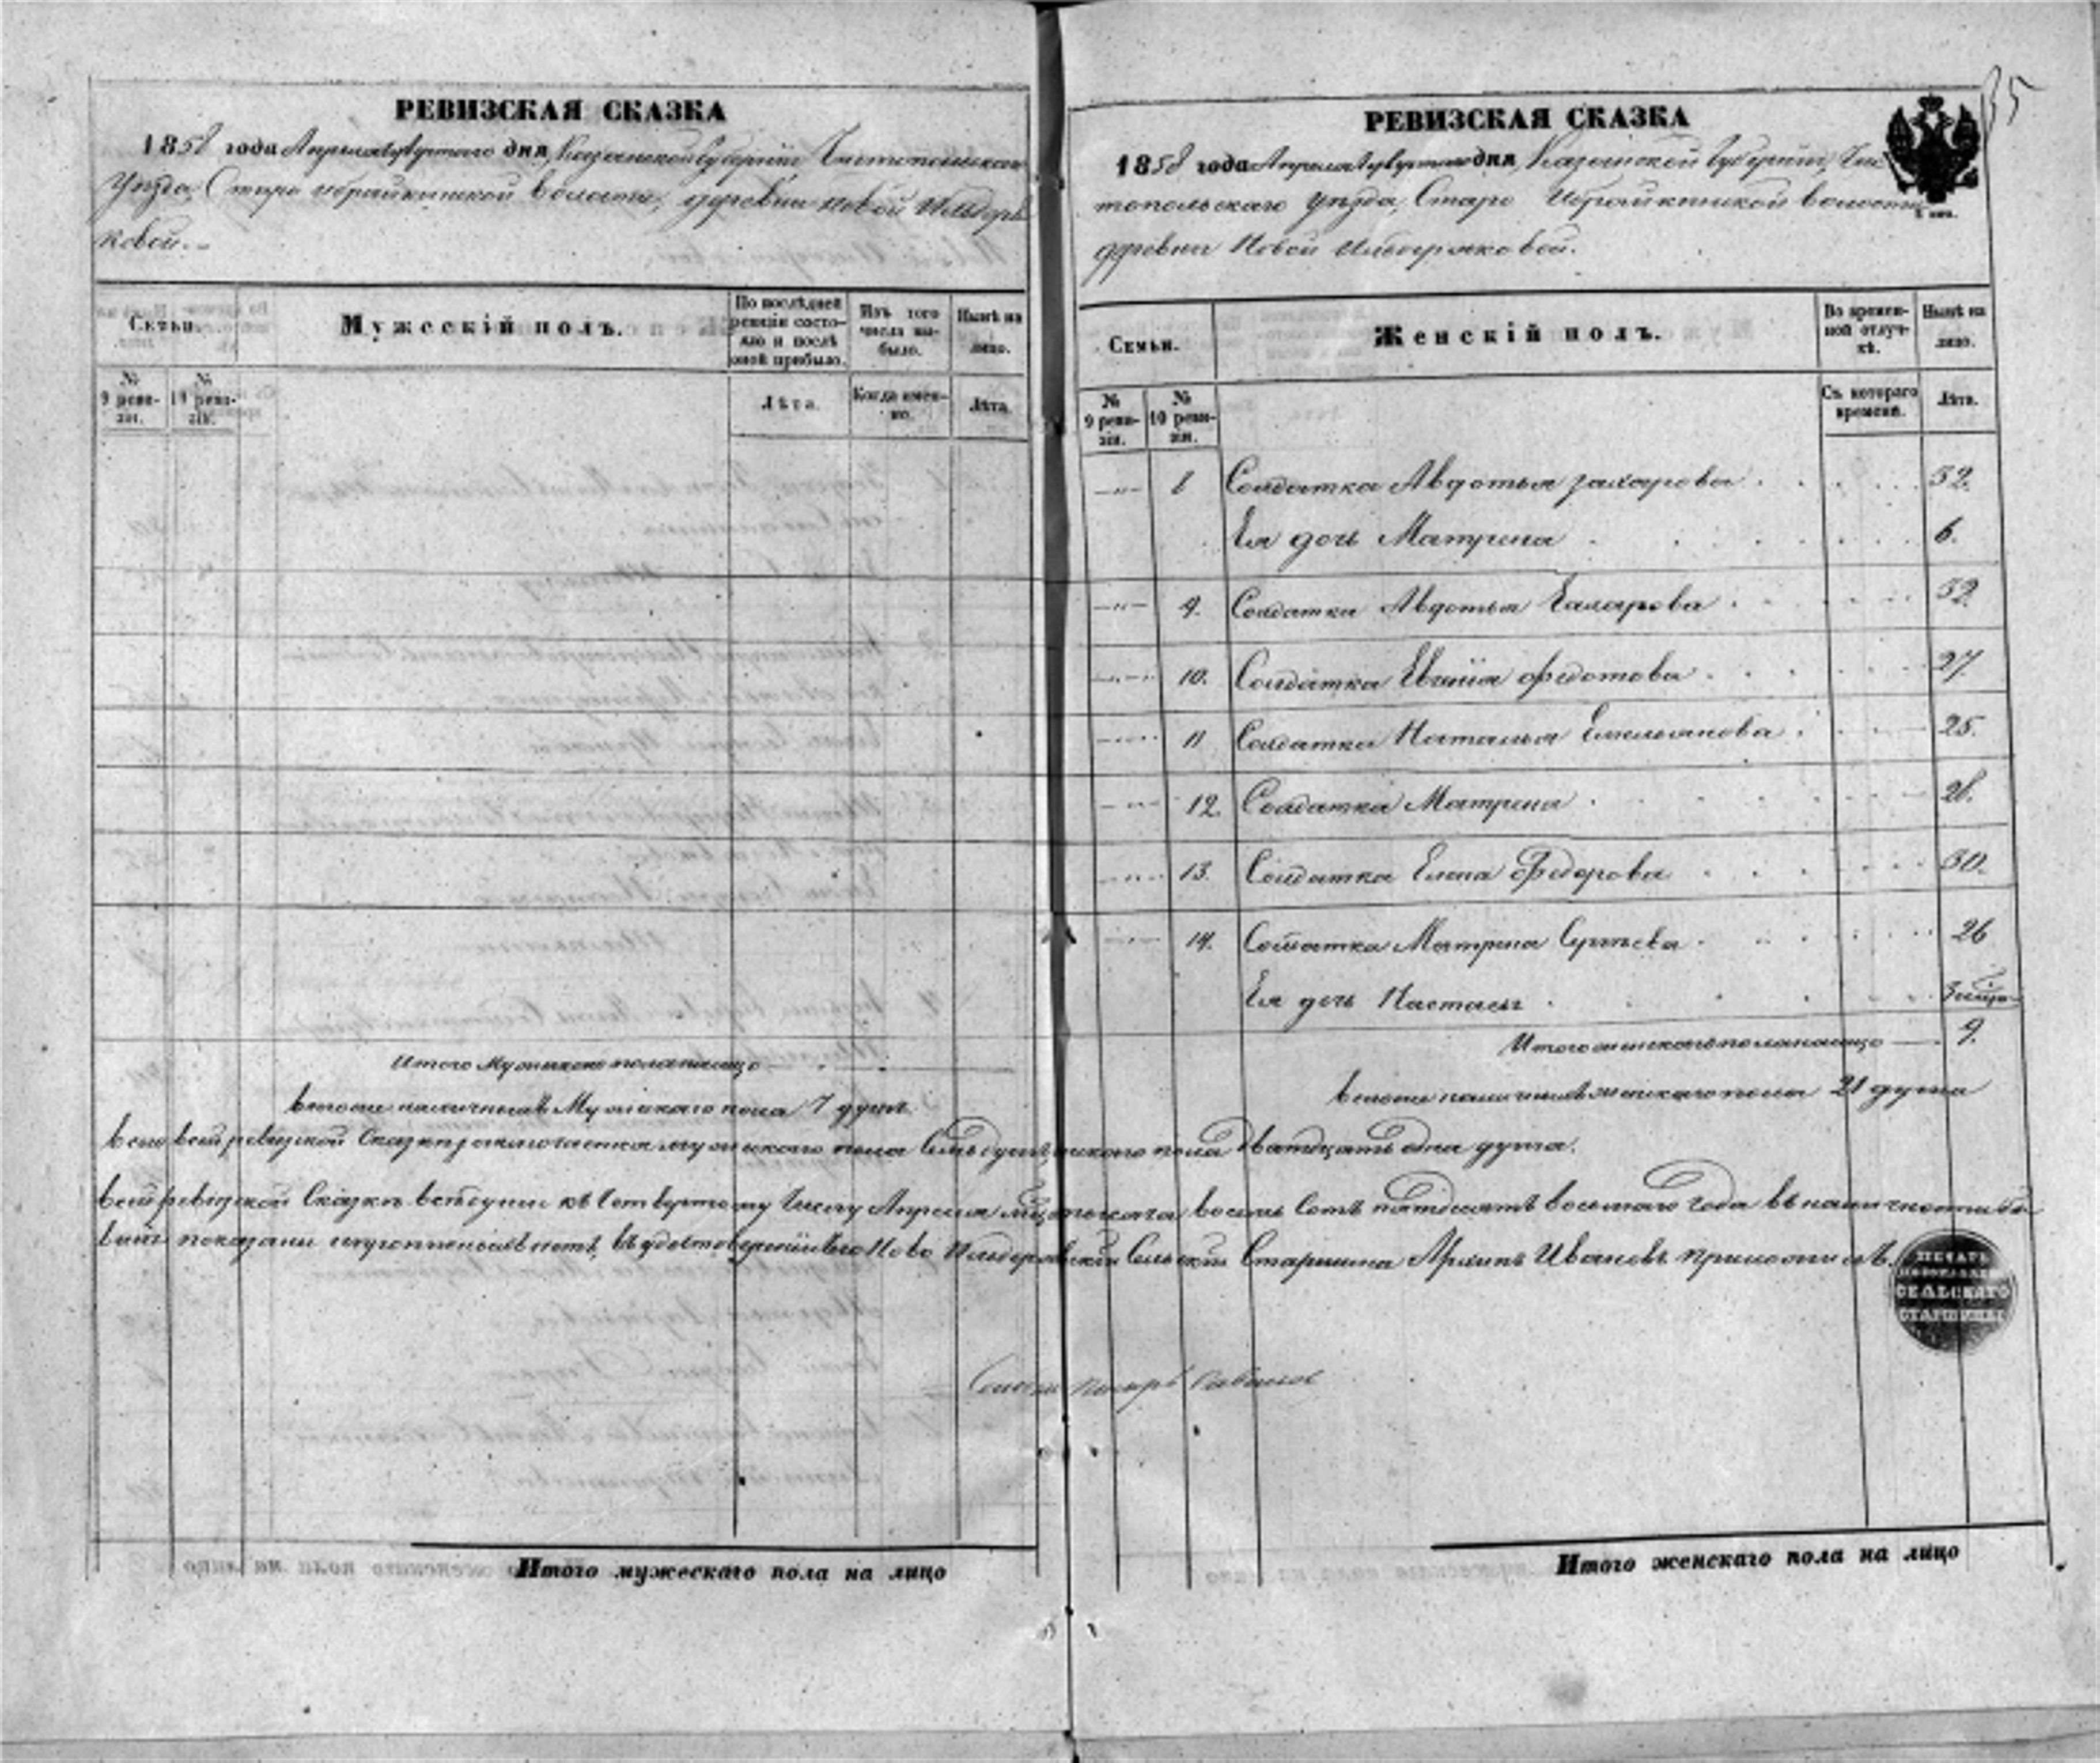 РЕВИЗСКАЯ СКАЗКА
1858 года Апреля четвертаго дня, Казанской Губернiи, Чистопольскаго
Уѣзда, Старо Ибрайкинской волости, деревни Новой Ильдеря
ковой.
Семьи.
Мужескiй полъ.
По послѣдней ревизiи состояло и послѣ оной прибыло.
Изъ того числа выбыло.
Нынѣ на лицо.
№ 9 ревизiи.
№ 10 ревизiи.
Лѣта.
Когда именно.
Лѣта.
Итого Мужескаго пола налицо
Всего наличныхъ Мужескаго пола 7 душъ.
РЕВИЗСКАЯ СКАЗКА
1858 года Апреля четвертаго дня, Казанской Губернiи, Чис
топольскаго Уѣзда, Старо Ибрайкинской волости
деревни Новой Ильдеряковой.
35
Семьи.
Женскiй полъ.
Во временной отлучкѣ.
Нынѣ на лицо.
№ 9 ревизiи.
№ 10 ревизiи.
Съ котораго времени.
Лѣта.
8 Солдатка Авдотья Захарова 32.
Ея дочь Матрена 6.
9. Солдатка Авдотья Захарова 32.
10. Солдатка федотова 27.
11 Солдатка Наталья Емельянова 25.
12. Солдатка Матрена 28.
13. Солдатка Елена Федорова 30.
14. Солдатка Матрена Сергѣева 26
Ея дочь Настасья
Итого женскаго пола налицо 9.
Всего наличныхъ женскаго пола 21 душа
Всего в сей ревизской Сказкѣ заключается мужескаго пола Семь душъ, женскаго пола Двадцать одна душа.
В сей ревизской Сказкѣ всѣ души къ Четвертому Числу Апреля тысяча восемь Сотъ пятдесятъ восьмаго года въ наличности бы
вшiе показаны и пропущенныхъ нетъ, въ удостоверенiи чего Ново Ильдеряковскiй Сельскiй Старшина Архипъ Ивановъ приложилъ.
ПЕЧАТЬ
СЕЛЬСКАГО
СТАРШИНЫ
Писарь
Итого мужескаго пола на лицо
Итого женскаго пола на лицо